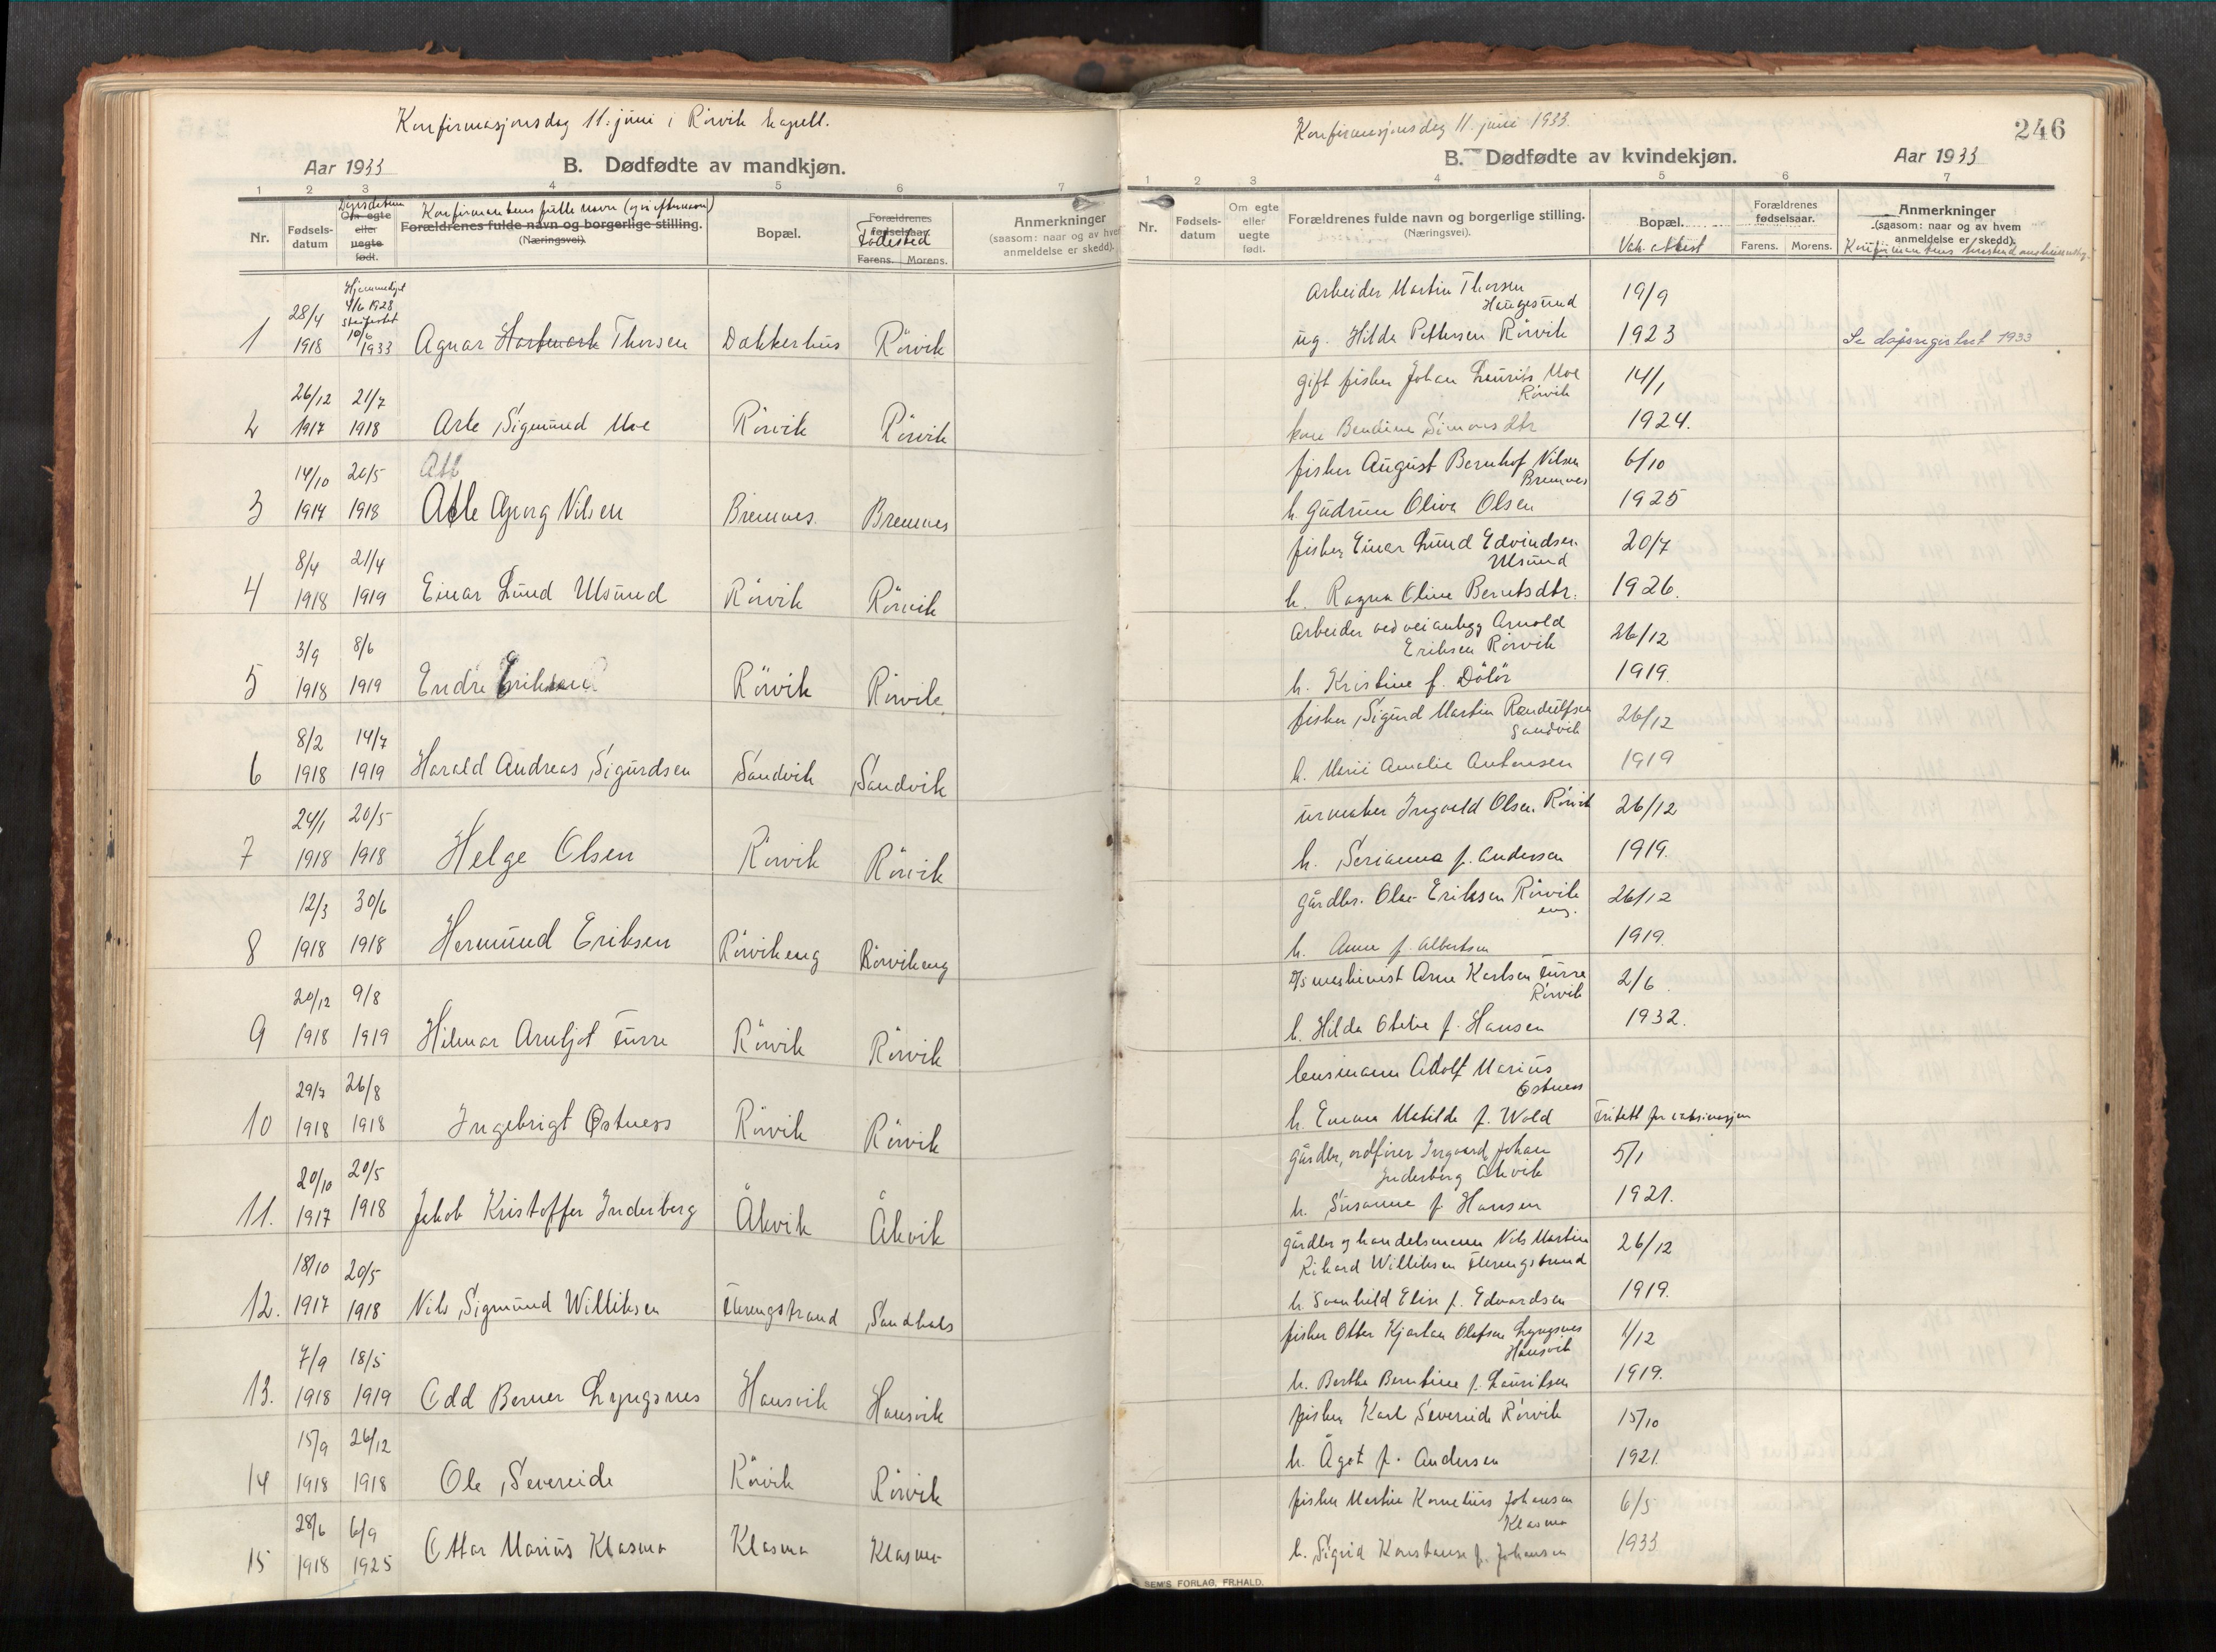 Konfirmasjonsdag 11. juni i Rörvik kapell.
Aar 1933
B. Dødfødte av mandkjøn.
1 2 3 4 5 6 7
Nr.
Fødsels-
datum
Dåpsdatum
Om egte
eller
uegte
født.
Konfirmantens fulle navn (og efternavn)
Forældrenes fulde navn og borgerlige stilling.
(Næringsvei).
Bopæl.
Forældrenes
fødselsaar.
Fødested
Farens. Morens.
Anmerkninger
(saasom: naar og av hvem
anmeldelse er skedd).
Hjemmedøpt
4/6 1928
28/4 10/6
1 1918 1933 Agnar Hartmark Thorsen Dakkerhus Rörvik
26/12 21/7
2 1917 1918 Arle Sigmund Moe Rörvik Rörvik
14/10 20/5 Atl
3 1917 1918 Atle Georg Nilsen Bremnes. Bremnes
8/4 21/4
4 1918 1919 Einar Lund Ulsund Rörvik Rörvik
3/9 8/6
5 1918 1919 Endre Eriksen Rörvik Rörvik
8/2 14/7
6 1918 1919 Harald Andreas Sigurdsen Sandvik Sandvik
24/1 20/5
7 1918 1918 Helge Olsen Rörvik Rörvik
12/3 30/6
8 1918 1918 Hermund Eriksen Rörvikeng Rörvikeng
20/12 9/8
9 1918 1919 Hilmar Arnljot Turre Rörvik Rörvik
29/7 26/8
10 1918 1918 Ingebrigt Ostness Rörvik Rörvik
20/10 20/5
11. 1917 1918 Jakob Kristoffer Inderberg Åkvik Åkvik
18/10 20/5
12. 1917 1918 Nils Sigmund Williksen Flerengstrand Sandhals
7/9 18/5
13. 1918 1919 Odd Berner Lyngsnes Hansvik Hansvik
15/9 26/12
14 1918 1918 Ole Severeide Rörvik Rörvik
28/6 6/9
15 1918 1925 Ottar Marius Klasma Klasma Klasma
Konfirmasjonsdag 11. juni 1933.
246
B. Dødfødte av kvindekjøn.
Aar 1933
1 2 3 4 5 6 7
Nr.
Fødsels-
datum
Om egte
eller
uegte
født.
Forældrenes fulde navn og borgerlige stilling.
(Næringsvei).
Bopæl.
Vak. attest
Forældrenes
fødselsaar.
Farens. Morens.
Anmerkninger
(saasom: naar og av hvem
anmeldelse er skedd).
Arbeider Martin Thorsen 19/9
Haugesund
ug. Hilda Pettersen Rörvik 1923 Se dåpsregistret 1933
gift fisker Johan Laurits Moe 14/1
Rörvik
kone Bendine Simonsdtr 1924.
fisker August Bernhof Nilsen 6/10
Bremnes
h. Gudrun Oliva Olsen 1925
fisker Einar Lund Edvindsen 20/7
Ulsund
h. Ragna Oline Berntsdtr. 1926.
Arbeider ved veianlegg Arnold 26/12
Eriksen Rörvik
h. Kristine f. Dölör 1919.
fisker Sigurd Martin Randulfsen 26/12
Sandvik
h. Marie Amalie Antonsen 1919
urmaker Ingvald Olsen Rörvik 26/12
h. Serianna f. Andersen 1919.
gårdbr. Olav Eriksen Rörvik 26/12
eng.
h. Anna f. Albertsen 1919.
D/S maskinist Arne Karlsen Turre 2/6
Rörvik
h. Hilda Otelie f. Hansen 1932.
lensmann Adolf Marius
Ostness
h. Emma Matilde f. Wold Fritatt for vaksinasjon
gårdbr, ordfører Ingvard Johan 5/1
Inderberg Åkvik
h. Susanne f. Hansen 1921.
gårdbr og handelsmann Nils Martin 26/12
Rikard Williksen Flerengstrand
h. Svanhild Elise f. Edvardsen 1919.
fisker Otter Kjartan Olafsen Lyngsnes 1/12
Hansvik
h. Berthe Berntine f. Lauritsen 1919.
fisker Karl Severeide Rörvik 15/10
h. Ågot f. Andersen 1921.
fisker Martin Kornelius Johansen 6/5
Klasma
h. Sigrid Konstanse f. Johansen 1933
SEM'S FORLAG, FR.HALD.